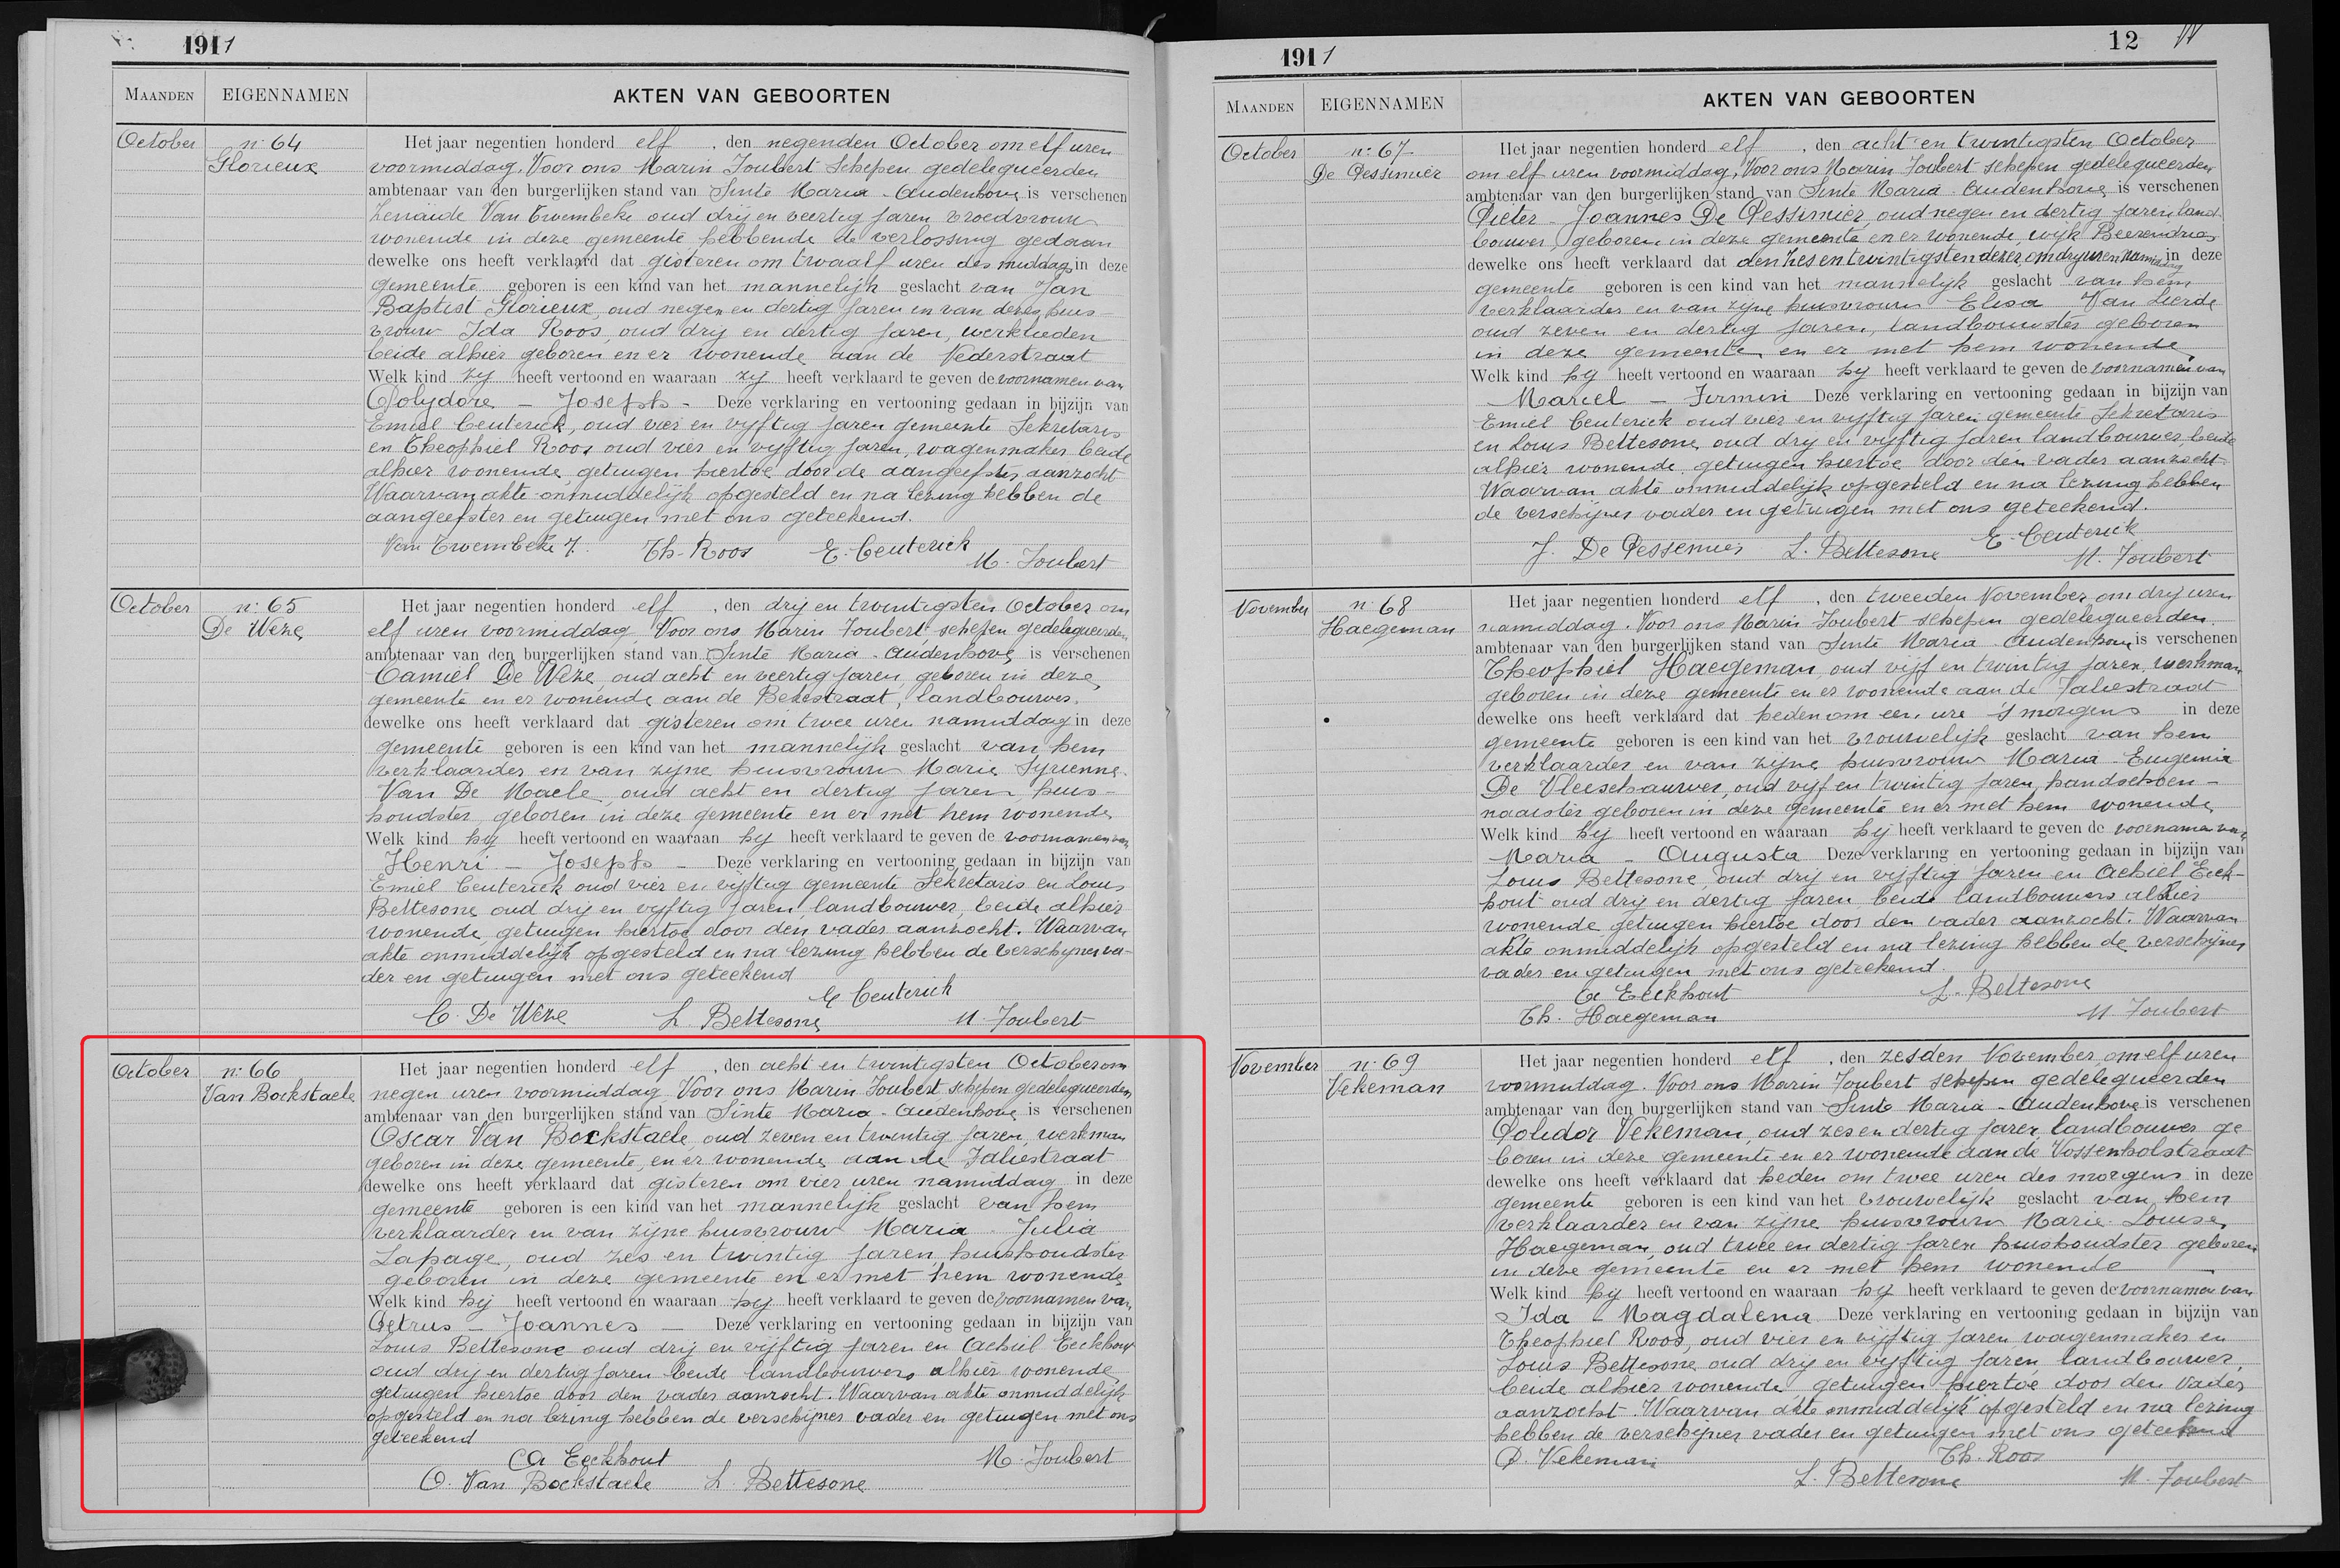 1911
MAANDEN
EIGENNAMEN
AKTEN VAN GEBOORTEN
October
n: 64
Glorieux
Het jaar negentien honderd elf , den negenden October om elf uren
voormiddag. Voor ons Marin Joubert Schepen gedelegueerden
ambtenaar van den burgerlijken stand van Sinte Maria-Audenhove is verschenen
Zenaïde Van Twembeke oud drij en veertig jaren vroedvrouw
wonende in deze gemeente, hebbende de verlossing gedaan
dewelke ons heeft verklaard dat gisteren om twaalf uren des middags in deze
gemeente geboren is een kind van het mannelijk geslacht van Jan
Baptist Glorieux, oud negen en dertig jaren en van dezes huis-
vrouw Ida Roos, oud drij en dertig jaren, werklieden
beide alhier geboren en er wonende aan de Nederstraat
Welk kind zij heeft vertoond en waaraan zij heeft verklaard te geven de voornamen van
Polydore - Joseph - Deze verklaring en vertooning gedaan in bijzijn van
Emiel Ceuterick, oud vier en vijftig jaren gemeente Sekretaris
en Theophiel Roos oud vier en vijftig jaren, wagenmaker beide
alhier wonende, getuigen hiertoe door de aangeefster aanzocht
Waarvan akte onmiddelijk opgesteld en na lezing hebben de
aangeefster en getuigen met ons geteekend.
Van Twembeke Z. Th. Roos E. Ceuterick
M. Joubert
October
n: 65
De Weze
Het jaar negentien honderd elf , den drij en twintigsten October om
elf uren voormiddag. Voor ons Marin Joubert schepen gedelegueerden
ambtenaar van den burgerlijken stand van Sinte Maria-Audenhove is verschenen
Camiel De Weze, oud acht en veertig jaren, geboren in deze
gemeente en er wonende aan de Bekestraat, landbouwer.
dewelke ons heeft verklaard dat gisteren om twee uren namiddag in deze
gemeente geboren is een kind van het mannelijk geslacht van hem
verklaarder en van zijne huisvrouw Marie Syrienne
Van De Maele, oud acht en dertig jaren, huis-
houdster, geboren in deze gemeente en er met hem wonende
Welk kind hij heeft vertoond en waaraan hij heeft verklaard te geven de voornamen van
Henri - Joseph - Deze verklaring en vertooning gedaan in bijzijn van
Emiel Ceuterick oud vier en vijftig gemeente Sekretaris en Louis
Bettesone oud drij en vijftig jaren, landbouwer, beide alhier
wonende, getuigen hiertoe door den vader aanzocht. Waarvan
akte onmiddelijk opgesteld en na lezing hebben de verschijner va-
der en getuigen met ons geteekend
E Ceuterick
C. De Weze L. Bettesone M. Joubert
October
n: 66
Van Bockstaele
Het jaar negentien honderd elf , den acht en twintigsten October om
negen uren voormiddag. Voor ons Marin Joubert, schepen gedelegueerden
ambtenaar van den burgerlijken stand van Sinte Maria-Audenhove is verschenen
Oscar Van Bockstaele oud zeven en twintig jaren, werkman
geboren in deze gemeente, en er wonende aan de Faliestraat
dewelke ons heeft verklaard dat gisteren om vier uren namiddag in deze
gemeente geboren is een kind van het mannelijk geslacht van hem
verklaarder en van zijne huisvrouw Maria - Julia
Lapage, oud zes en twintig jaren, huishoudster
geboren in deze gemeente en er met hem wonende
Welk kind hij heeft vertoond en waaraan hij heeft verklaard te geven de voornamen van
Petrus - Joannes - Deze verklaring en vertooning gedaan in bijzijn van
Louis Bettesone oud drij en vijftig jaren en Achiel Eeckhout
oud drij en dertig jaren beide landbouwers alhier wonende
getuigen hiertoe door den vader aanzocht. Waarvan akte onmiddelijk
opgesteld en na lezing hebben de verschijner vader en getuigen met ons
geteekend
A Eeckhout M. Joubert
O. Van Bockstaele L. Bettesone
1911
12
MAANDEN
EIGENNAMEN
AKTEN VAN GEBOORTEN
October
n: 67
De Pessemier
Het jaar negentien honderd elf , den acht en twintigsten October
om elf uren voormiddag, Voor ons Marin Joubert schepen gedelegueerden
ambtenaar van den burgerlijken stand van Sinte Maria-Audenhove is verschenen
Pieter - Joannes De Pessimier, oud negen en dertig jaren, land-
bouwer, geboren in deze gemeente en er wonende, wijk Beerendries
dewelke ons heeft verklaard dat den zes en twintigsten dezer, om drij uren namiddag in deze
gemeente geboren is een kind van het mannelijk geslacht van hem
verklaarder en van zijne huisvrouw Elisa Van Lierde
oud zeven en dertig jaren, landbouwster geboren
in deze gemeente en er met hem wonende.
Welk kind hij heeft vertoond en waaraan hij heeft verklaard te geven de voornamen van
Marcel - Firmin Deze verklaring en vertooning gedaan in bijzijn van
Emiel Ceuterick oud vier en vijftig jaren gemeente Sekretaris
en Louis Bettesone oud drij en vijftig jaren landbouwer, beide
alhier wonende, getuigen hiertoe door den vader aanzocht
Waarvan akte onmiddelijk opgesteld en na lezing hebben
de verschijner vader en getuigen met ons geteekend.
J. De Pessemier L. Bettesone E. Ceuterick
M. Joubert
November
n: 68
Haegeman
Het jaar negentien honderd elf , den tweeden November om drij uren
namiddag. Voor ons Marin Joubert schepen gedelegueerden
ambtenaar van den burgerlijken stand van Sinte Maria-Audenhove is verschenen
Theophiel Haegeman, oud vijf en twintig jaren, werkman
geboren in deze gemeente en er wonende aan de Faliestraat
dewelke ons heeft verklaard dat heden om een ure 's morgens in deze
gemeente geboren is een kind van het vrouwelijk geslacht van hem
verklaarder en van zijne huisvrouw Maria - Eugenia
De Vleeschauwer, oud vijf en twintig jaren, handschoen-
naaister geboren in deze gemeente en er met hem wonende
Welk kind hij heeft vertoond en waaraan hij heeft verklaard te geven de voornamen van
Maria - Augusta Deze verklaring en vertooning gedaan in bijzijn van
Louis Bettesone, oud drij en vijftig jaren en Achiel Eeck-
hout oud drij en dertig jaren beide landbouwers alhier
wonende, getuigen hiertoe door den vader aanzocht. Waarvan
akte onmiddelijk opgesteld en na lezing hebben de verschijner
vader en getuigen met ons geteekend.
A Eeckhout L. Bettesone
Th. Haegeman M Joubert
November
n: 69
Vekeman
Het jaar negentien honderd elf , den zesden November, om elf uren
voormiddag. Voor ons Marin Joubert schepen gedelegueerden
ambtenaar van den burgerlijken stand van Sinte Maria-Audenhove is verschenen
Polidor Vekeman, oud zes en dertig jaren, landbouwer ge
boren in deze gemeente en er wonende aan de Vossenholstraat
dewelke ons heeft verklaard dat heden om twee uren des morgens in deze
gemeente geboren is een kind van het vrouwelijk geslacht van hem
verklaarder en van zijne huisvrouw Marie-Louise
Haegeman, oud twee en dertig jaren huishoudster geboren
in deze gemeente en er met hem wonende
Welk kind hij heeft vertoond en waaraan hij heeft verklaard te geven de voornamen van
Ida - Magdalena Deze verklaring en vertooning gedaan in bijzijn van
Theophiel Roos, oud vier en vijftig jaren, wagenmaker en
Louis Bettesone oud drij en vijftig jaren, landbouwer,
beide alhier wonende, getuigen hiertoe door den vader
aanzocht. Waarvan akte onmiddelijk opgesteld en na lezing
hebben de verschijner vader en getuigen met ons geteekend
P. Vekeman Th. Roos
L. Bettesone M. Joubert